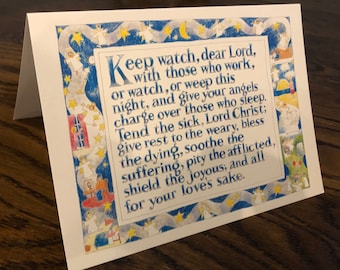 Keep watch, dear Lord,
with those who work,
or watch, or weep this
night, and give your angels
charge over those who sleep.
Tend the sick, Lord Christ;
give rest to the weary, bless
the dying, soothe the
suffering, pity the afflicted,
shield the joyous; and all
for your loves sake.